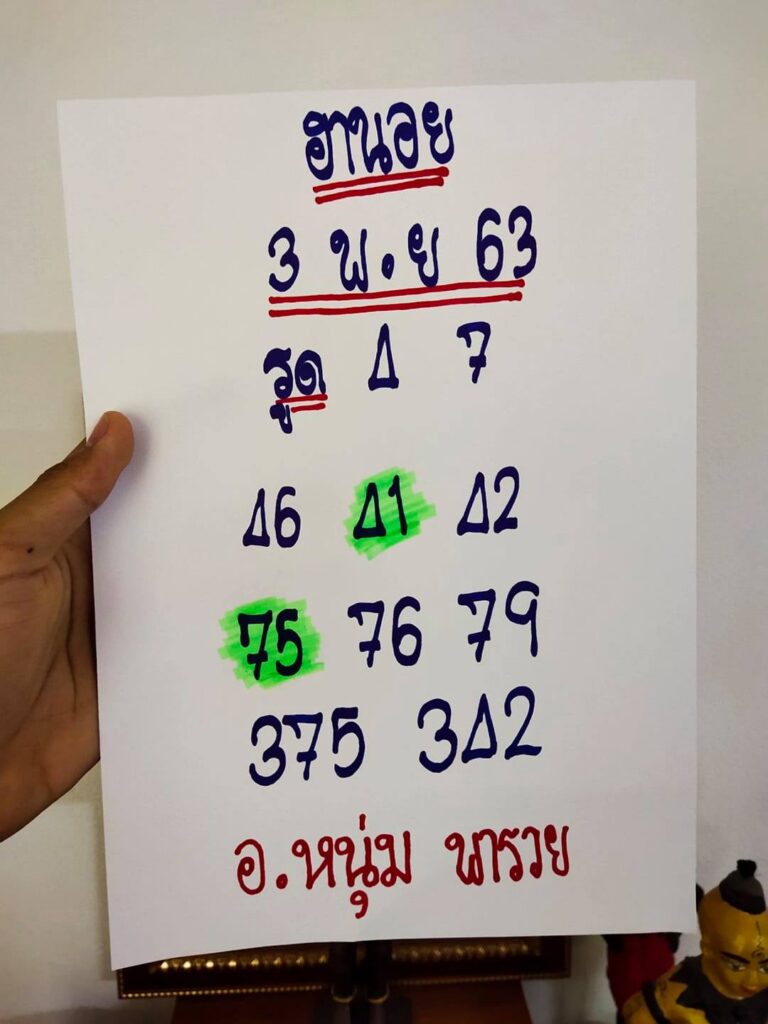 ฮานอย
3 พ.ย 63
รูด 4 7
46 41 42
75 76 79
375 342
อ.หนุ่ม พารวย